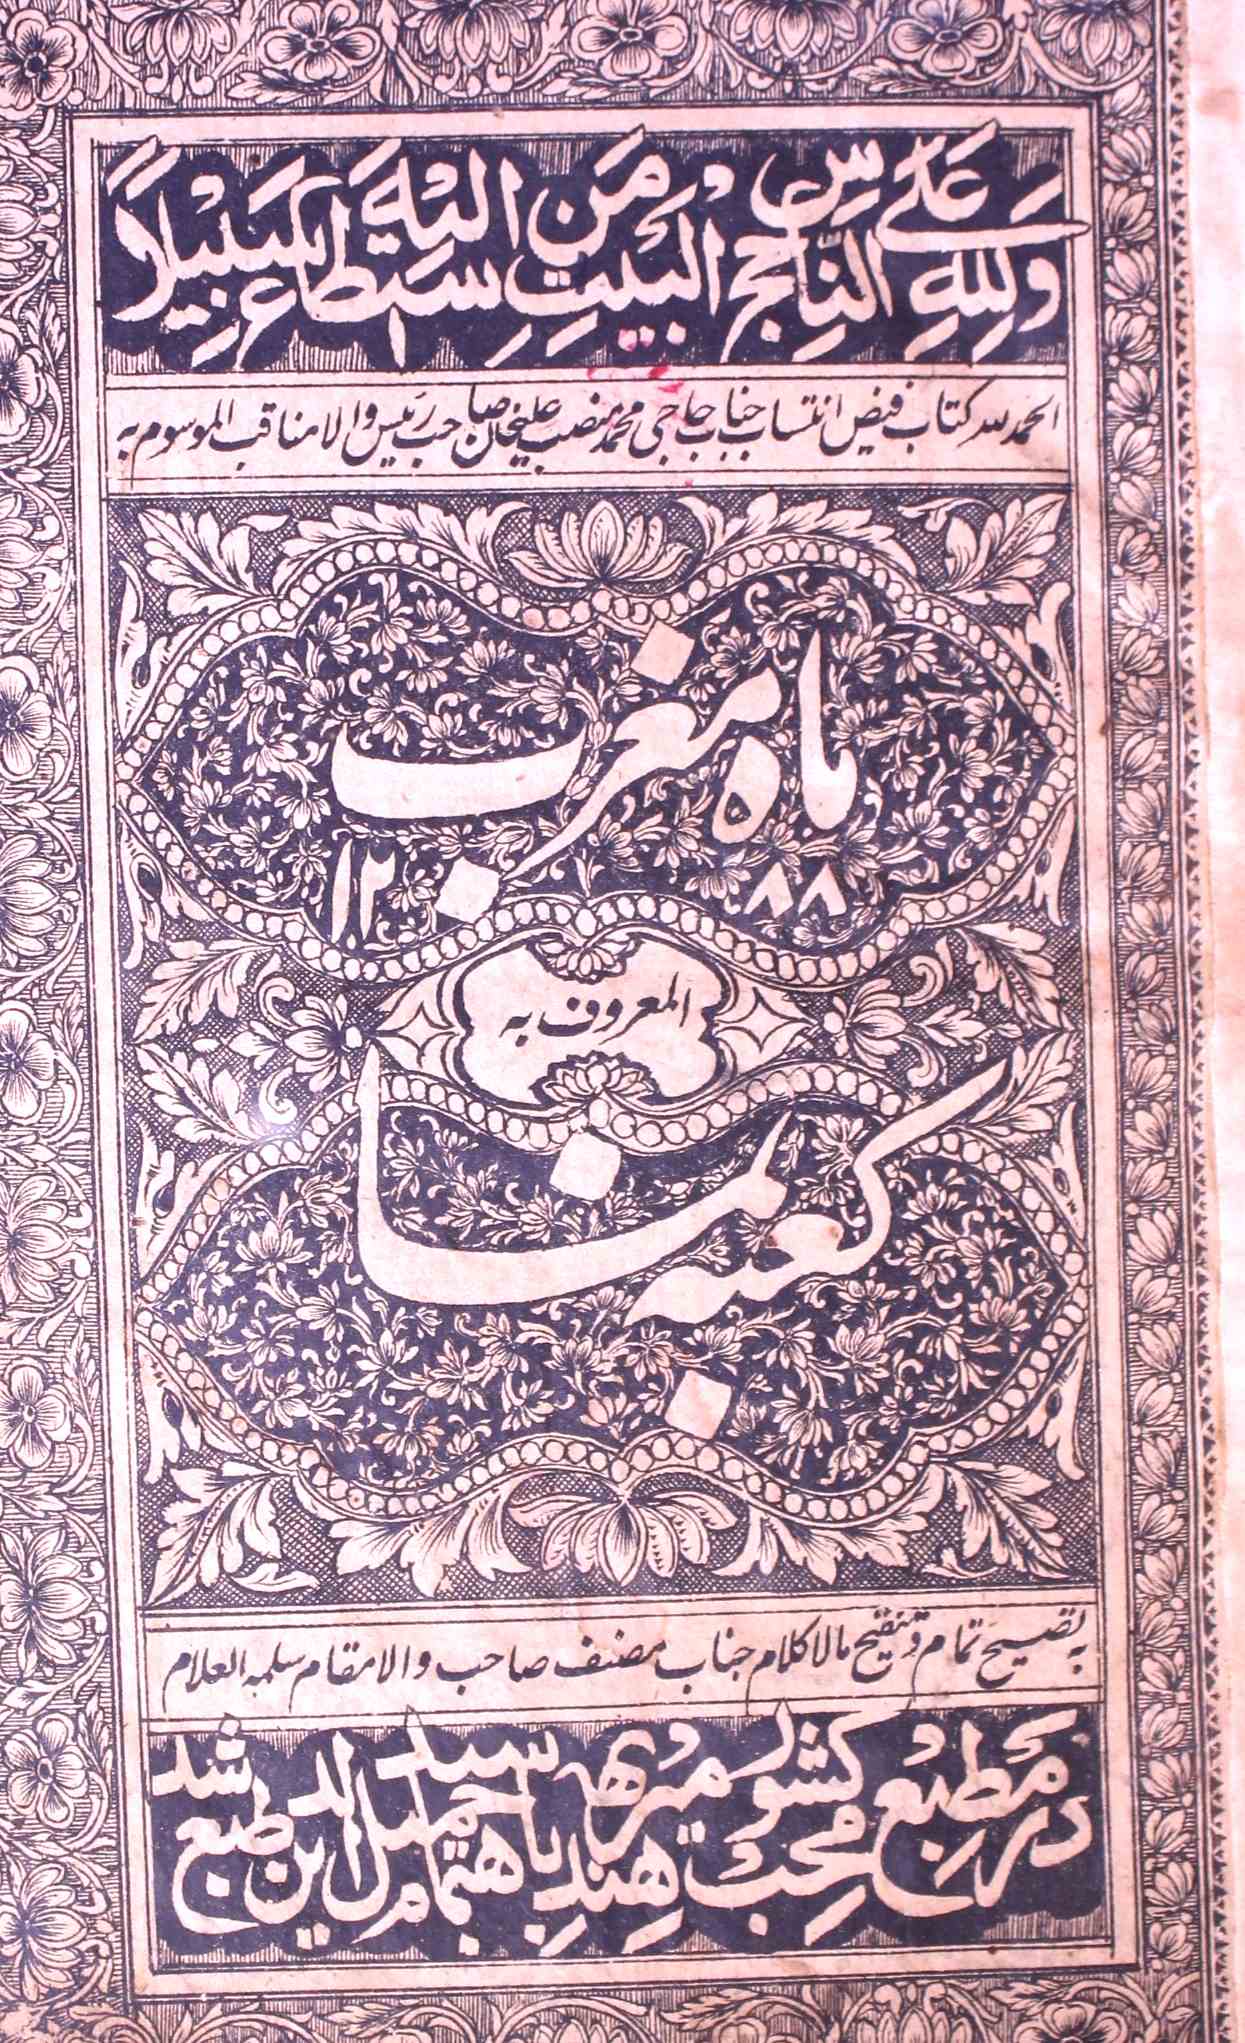 وَلِلّٰهِ عَلَى النَّاسِ حِجُّ الْبَيْتِ مَنِ اسْتَطَاعَ إِلَيْهِ سَبِيْلًا
الحمد للہ کتاب فیض انتساب جناب حاجی محمد منصب علیخان صاحب رئیس والا مناقب الموسوم بہ
ماہ مغرب
۱۲۸۸
المعروف بہ
کعبہ نما
بہ تصحیح تمام و تنقیح مالا کلام جناب مصنف صاحب والا مقام سلمہ العلام
در مطبع محب کشور ہند میرٹھ باہتمام سید جمیل الدین طبع شد